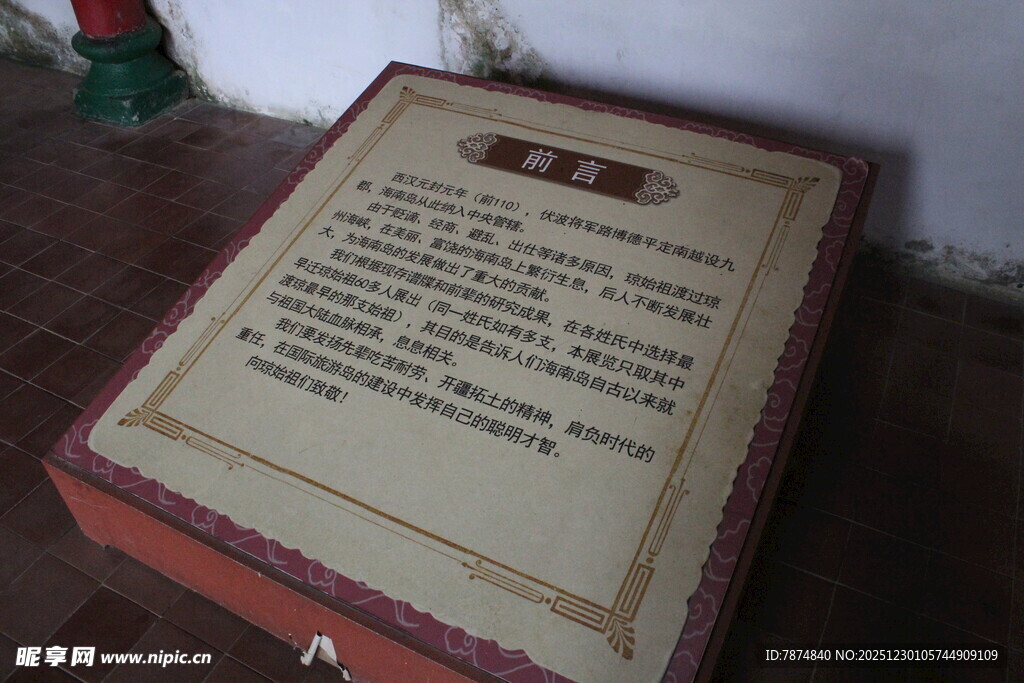 前言
西汉元封元年（前110），伏波将军路博德平定南越设九
郡，海南岛从此纳入中央管辖。
由于贬谪、经商、避乱、出仕等诸多原因，琼始祖渡过琼
州海峡，在美丽、富饶的海南岛上繁衍生息，后人不断发展壮
大，为海南岛的发展做出了重大的贡献。
我们根据现存谱牒和前辈的研究成果，在各姓氏中选择最
早迁琼始祖60多人展出（同一姓氏如有多支，本展览只取其中
渡琼最早的那支始祖），其目的是告诉人们海南岛自古以来就
与祖国大陆血脉相承，息息相关。
我们要发扬先辈吃苦耐劳、开疆拓土的精神，肩负时代的
重任，在国际旅游岛的建设中发挥自己的聪明才智。
向琼始祖们致敬！
昵享网 www.nipic.cn
ID:7874840 NO:20251230105744909109